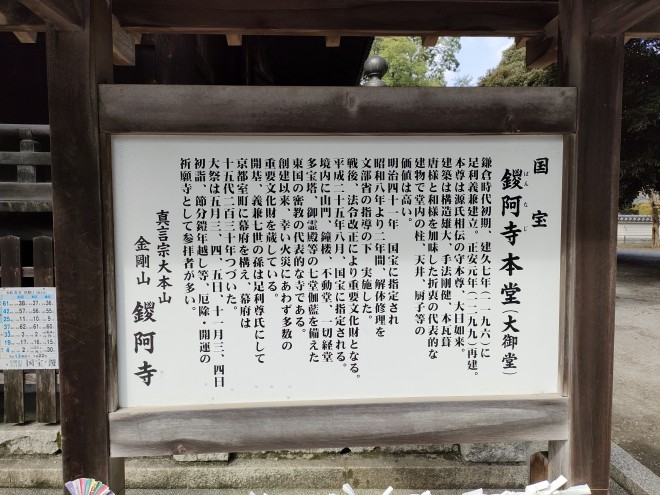 国宝
鑁阿寺本堂（大御堂）
ばんなじ
鎌倉時代初期、建久七年（一一九六）に
足利義兼建立。正安元年（一二九九）再建。
本尊は源氏相伝の守本尊、大日如来。
建築は構造雄大、手法剛健、本瓦葺
唐様と和様を加味した折衷の代表的な
建物で堂内の柱、天井、厨子等の
価値は高い。
明治四十一年、国宝に指定され
昭和八年より二年間、解体修理を
文部省の指導の下、実施した。
戦後、法令改正により重要文化財となる。
平成二十五年八月、国宝に指定される。
境内に山門、鐘楼、不動堂、一切経堂
多宝塔、御霊殿等の七堂伽藍を備えた
東国の密教の代表的な寺である。
創建以来、幸い火災にあわず多数の
重要文化財を蔵している。
開基、義兼七世の孫は足利尊氏にして
京都室町に幕府を構え、幕府は
十五代二百三十年つづいた。
大祭は五月三、四、五日、十一月三、四日
初詣、節分鎧年越し等、厄除・開運の
祈願寺として参拝者が多い。
真言宗大本山
金剛山 鑁阿寺